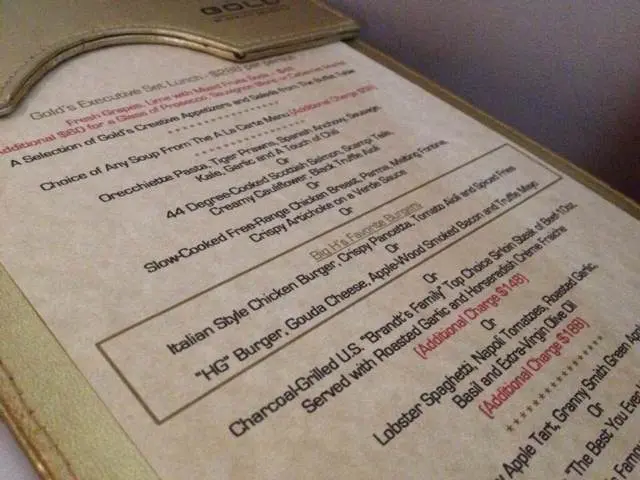 GOLD
Gold's Executive Set Lunch - $298 per person
Fresh Grapes, Lime with Mixed Fruits Soda - $48
Additional $60 for a Glass of Prosecco, Sauvignon Blanc or Cabernet Merlot
A Selection of Gold's Creative Appetizers and Salads from The Buffet Table
Choice of Any Soup From The A La Carte Menu (Additional Charge
Orecchiette Pasta, Tiger Prawns, Spanish Anchovy Sausage,
Kale, Garlic and A Touch of Chili
Or
44 Degree-Cooked Scottish Salmon, Scampi Tails,
Creamy Cauliflower, Black Truffle Aioli
Or
Slow-Cooked Free-Range Chicken Breast, Parma, Melting Fontina,
Crispy Artichoke on a Verde Sauce
Or
Big H's Favorite Burgers
Italian Style Chicken Burger, Crispy Pancetta, Tomato Aioli and Spiced Fries
Or
"HG" Burger, Gouda Cheese, Apple-Wood Smoked Bacon and Truffle Mayo
Or
Charcoal-Grilled U.S. "Brandt's Family" Top Choice Sirloin Steak of Beef 10oz.
Served with Roasted Garlic and Horseradish Crème Fraiche
(Additional Charge $148)
Or
Lobster Spaghetti, Napoli Tomatoes, Roasted Garlic,
Basil and Extra-Virgin Olive Oil
(Additional Charge $188)
Apple Tart, Granny Smith Green
Or
"The Best You Ever